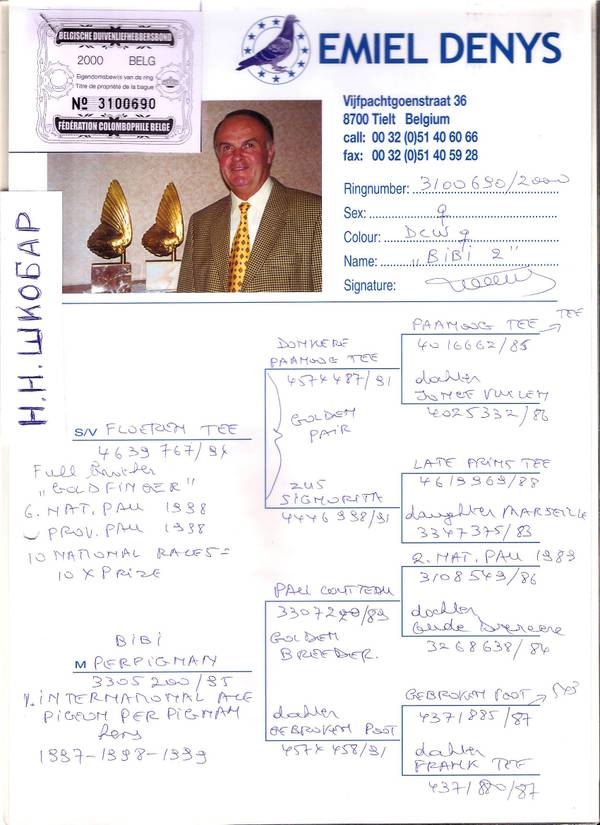 BELGISCHE DUIVENLIEFHEBBERSBOND
2000 BELG
Eigendomsbewijs van de ring
Titre de propriété de la bague
Nº 3100690
FÉDÉRATION COLOMBOPHILE BELGE
EMIEL DENYS
Vijfpachtgoenstraat 36
8700 Tielt Belgium
call: 00 32 (0)51 40 60 66
fax: 00 32 (0)51 40 59 28
Ringnumber: 3100690/2000
Sex:
Colour:
Name: "BiBi 2"
Signature:
Н.Н. ШКОБАР
S/V FLOEREN TEE
4639 767/94
Full Brother
"GOLDFINGER"
6. NAT. PAU 1998
PROV. PAU 1998
10 NATIONAL RACES =
10 X PRIZE
BiBi
M PERPIGNAN
3305200/95
1. INTERNATIONAL ACE
PIGEON PERPIGNAN
hens
1997-1998-1999
DONKERE
PAAMOUG TEE
4574487/91
GOLDEN
PAIR
ZUS
SIGNORITA
4446998/91
PAU COUTTEAU
GOLDEN
BREEDER.
dochter
GEBROKEN POOT
4574458/91
PAAMOUG TEE TEE
4016662/85
dochter
4025332/86
LATE PRINS TEE
4619969/88
daughter MARSEILLE
3347375/83
2. NAT. PAU 1989
3108549/86
dochter
Oude
3268638/84
GEBROKEN POOT
4371885/87
dochter
FRANK TEE
4371880/87